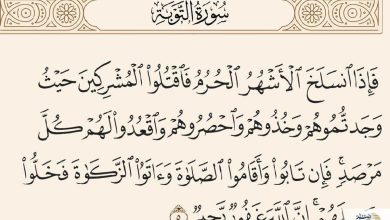 سُورَةُ التَّوْبَةِ
فَإِذَا ٱنسَلَخَ ٱلْأَشْهُرُ ٱلْحُرُمُ فَٱقْتُلُوا۟ ٱلْمُشْرِكِينَ حَيْثُ
وَجَدتُّمُوهُمْ وَخُذُوهُمْ وَٱحْصُرُوهُمْ وَٱقْعُدُوا۟ لَهُمْ كُلَّ
مَرْصَدٍۚ فَإِن تَابُوا۟ وَأَقَامُوا۟ ٱلصَّلَوٰةَ وَءَاتَوُا۟ ٱلزَّكَوٰةَ فَخَلُّوا۟
لَهُمْۚ إِنَّ ٱللَّهَ غَفُورٌ رَّحِيمٌ ٥